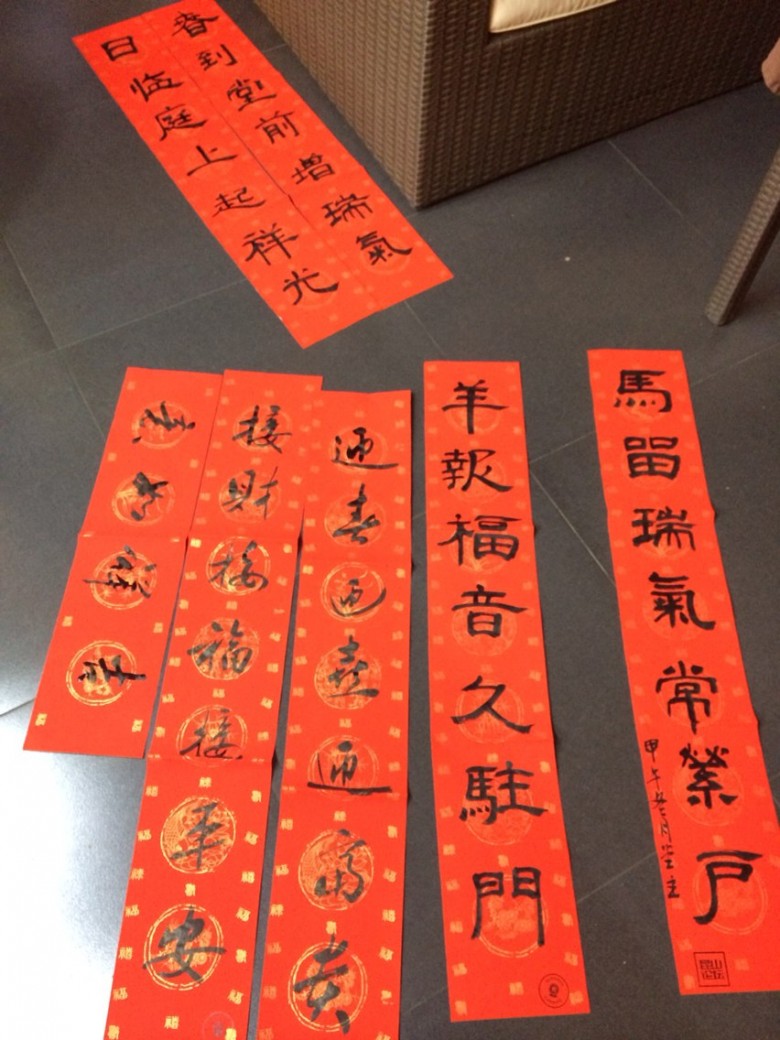 春到堂前增瑞氣
日临庭上起祥光
馬留瑞氣常縈戶
甲午
羊報福音久駐門
迎春迎喜迎富贵
接财接福接平安